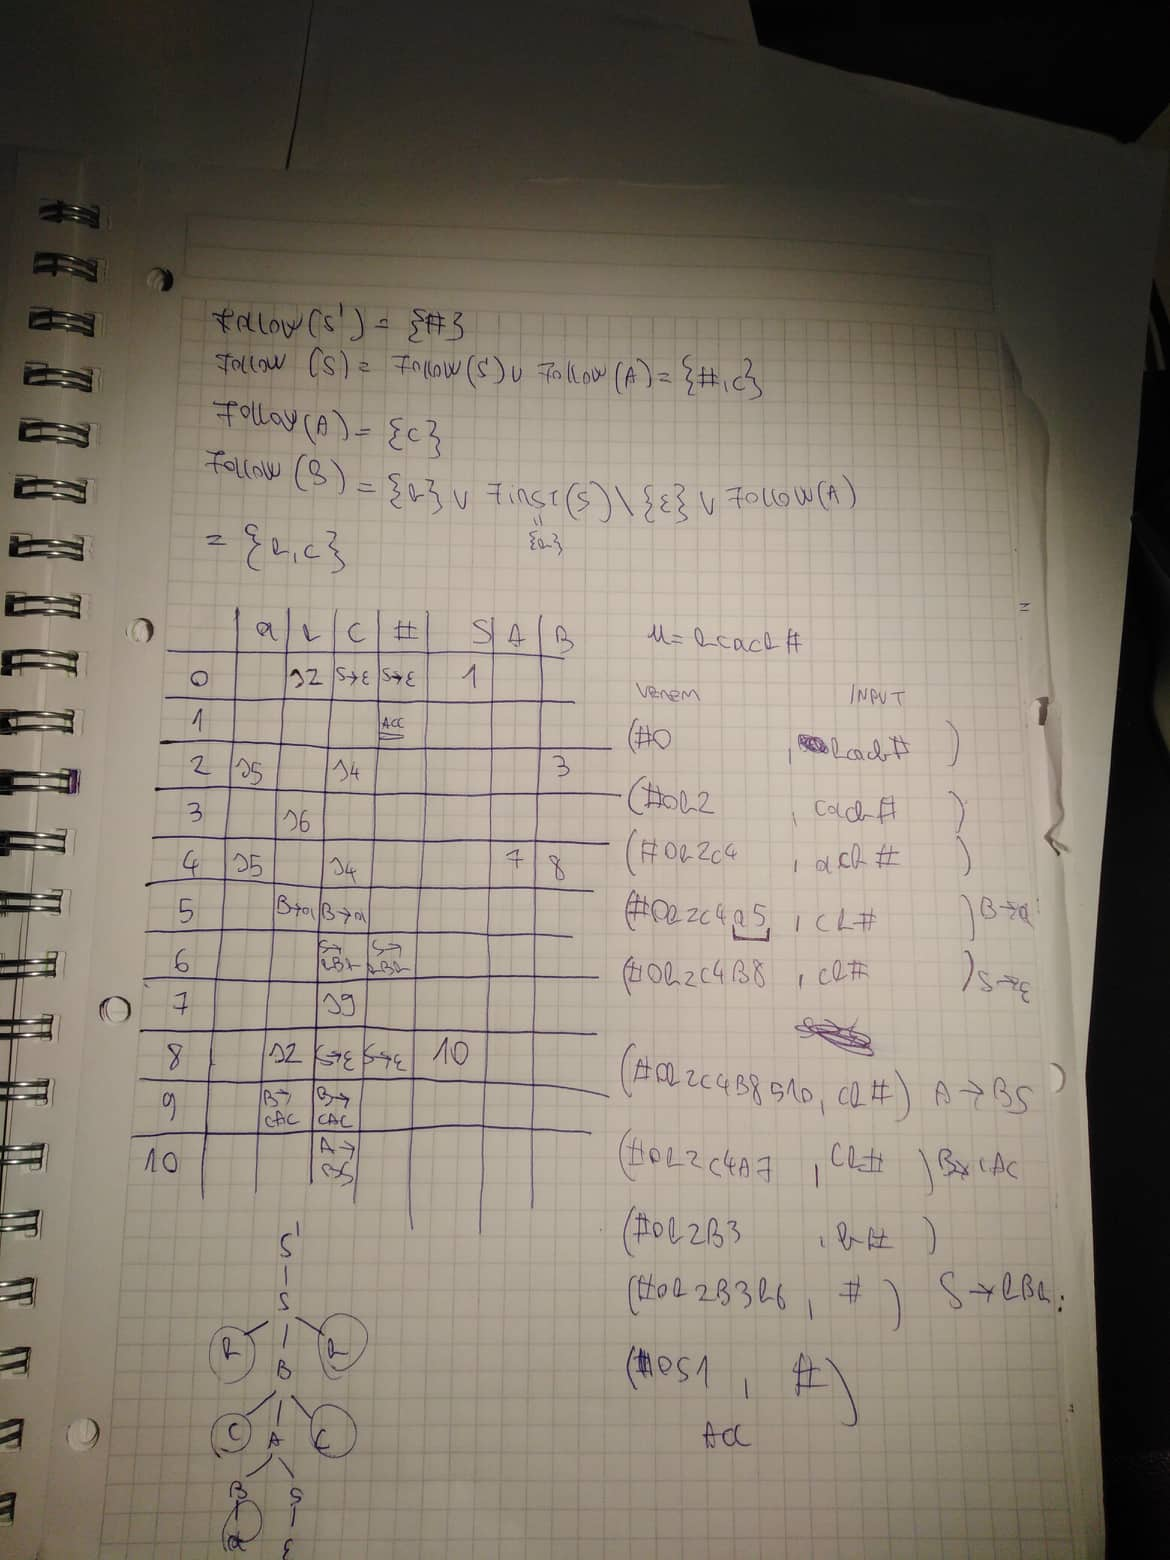 Follow(S') = {#}
Follow (S) = Follow(S') ∪ Follow(A) = {#,c}
Follow(A) = {c}
Follow (B) = {b} ∪ First(S) \ {ε} ∪ Follow(A)
= {b,c}
{b}
a b c # S A B
0 s2 S→ε S→ε 1
1 ACC
2 s5 s4 3
3 s6
4 s5 s4 7 8
5 B→a B→a
6 S→bBb S→bBb
7 s9
8 s2 S→ε S→ε 10
9 B→cAc B→cAc
10 A→BS
S'
S
b b
B
c A c
B S
a ε
u = bcacb#
INPUT
(#0 , bcacb# )
(#0b2 , cacb# )
(#0b2c4 , acb# )
(#0b2c4a5 , cb# ) B→a
(#0b2c4B8 , cb# ) S→ε
(#0b2c4B8S10, cb#) A→BS
(#0b2c4A7 , cb# ) B→cAc
(#0b2B3 , b# )
(#0b2B3b6 , # ) S→bBb
(#0S1 , #)
Acc